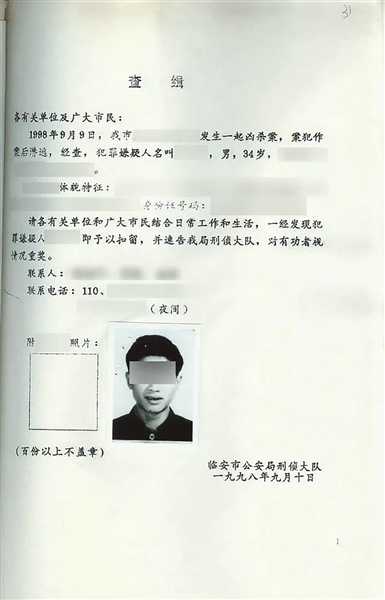 31
查 缉
各有关单位及广大市民：
1998年9月9日，我市 发生一起凶杀案，案犯作
案后潜逃，经查，犯罪嫌疑人名叫 ，男，34岁，
。
体貌特征：
身份证号码：
请各有关单位和广大市民结合日常工作和生活，一经发现犯
罪嫌疑人 即予以扣留，并速告我局刑侦大队，对有功者视
情况重奖。
联系人：
联系电话：110、
（夜间）
附 照片：
(百份以上不盖章)
临安市公安局刑侦大队
一九九八年九月十日
1